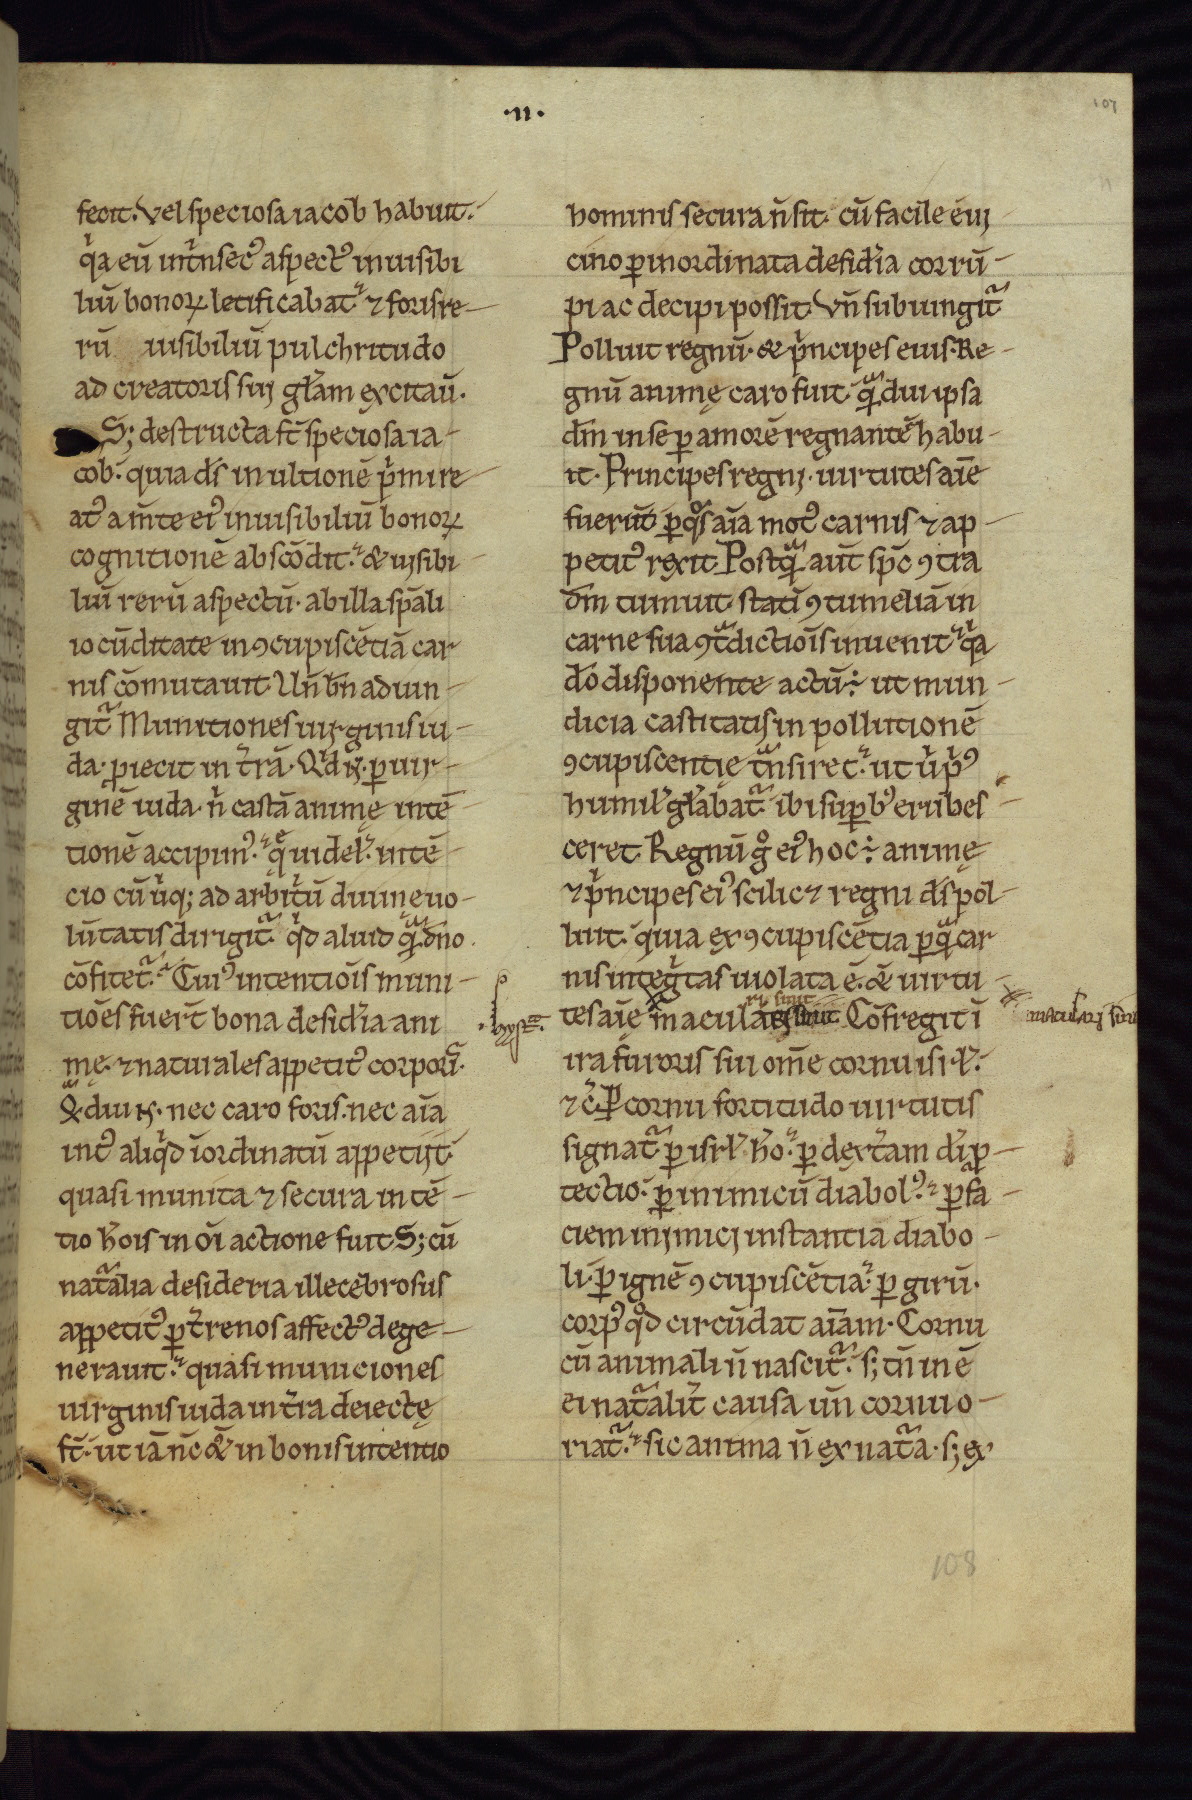 ·II·
107
fecit. Vel speciosa iacob habuit.
q̍a eū int̍nsec᾽ aspect᾽ inuisibi
liū bonoꝝ letificabat᷑ ⁊ foris re
rū uisibiliū pulchritudo
ad creatoris sui gl̄am excitauꝰ.
S; destructa st̄ speciosa ia
cob. quia ds̄ in ultionē p̍mi re
atꝰ a m̄te eiꝰ inuisibiliū bonoꝝ
cognitionē abscōdit. & uisibi
liū rerū aspectū. ab illa sp̄ali
iocūditate in ꝯcupiscētiā car
nis cōmutauit. Un̄ bn̄ adiun
git᷑ Munitiones uirginis iu
da. ꝓiecit in t̄rā. Q̍d .N. p uir
ginē iuda. n̍ castā animę intē
tionē accipimꝰ. quę uidel᷑. intē
cio cū ūq; ad arbit̍ū diuinę uo
lūtatis dirigit᷑. q̍d aliud q̄ dn̄o
cōfitet᷑. Cuiꝰ intentiōis muni
tiōes fuer̄t bona desid̍ia ani
mę. ⁊ naturales appetitꝰ corpori.
Q̄diu .N. nec caro foris. nec aīa
intꝰ aliq̍d īordinatū appetijt.
quasi munita ⁊ secura intē
tio hōis in oī actione fuit. S; cū
nat᷑alia desideria illecebrosus
appetitꝰ p t̄renos affectꝰ dege
nerauit. quasi municiones
uirginis iuda in t̄ra deiectę
st̄. ut iā nc̄ & in bonis intentio
hominis secura n̄ sit. cū facile e iij
cino p inordinata desid̍ia corrū
pi ac decipi possit. Vn̄ subiungit᷑
Polluit regnū. & p̍ncipes eius. Re
gnū animę caro fuit. q̄diu ipsa
dm̄ in se p amorē regnantē habu
it. Principes regni. uirtutes aīe
fuerūt p q̊s aīa motꝰ carnis ⁊ ap
petitꝰ rexit. Postq̄ aūt sp̄c ꝯtra
dm̄ tumuit. statī ꝯtumeliā in
carne sua ꝯt᷑dictiōis inuenit. q̍a
dō disponente actū ÷ ut mun
dicia castitatis in pollutionē
ꝯcupiscentię t᷑nsiret. ut ū p̍ꝰ
humil᷑ gl̄abat᷑. ibi supbꝰ erubes
ceret. Regnū g̊ eiꝰ hoc ÷ animę
⁊ p̍ncipes eiꝰ scilic⁊ regni ds̄ pol
luit. quia ex ꝯcupiscētia p q̄ car
nis integ̍tas uiolata ē. & uirtu
tes aīę maculari
ry sinit
Cōfregit ī
maculari sinit
ira furoris sui om̄e cornu isrl᷑.
⁊ c̄. P cornu fortitudo uirtutis
signat᷑. p isrl᷑ hō. p dext̍am di p
tectio. p inimicū diabolꝰ. p fa
ciem inimici instantia diabo
li. p ignē ꝯcupiscētia. p girū.
corpꝰ q̊d circūdat aīam. Cornu
cū animali n̄ nascit᷑. s; tn̄ inē
ei nat᷑alit̄ causa un̄ cornu o
riat᷑. sic anima n̄ ex nat᷑a. s; ex
108